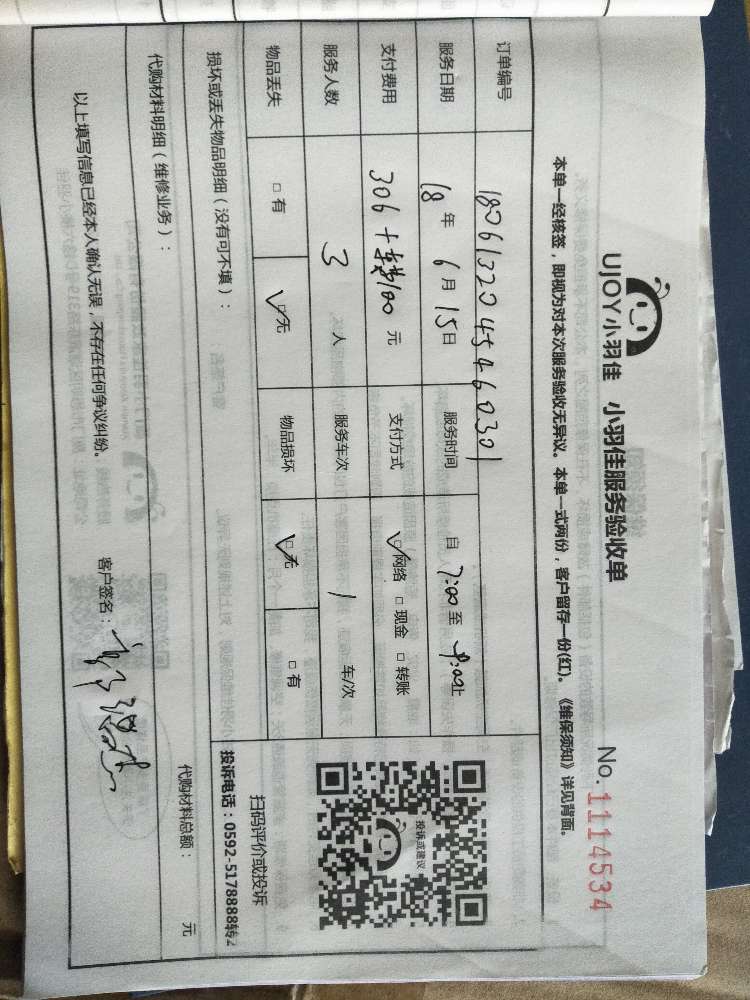 UJOY小羽佳 小羽佳服务验收单
No. 1114534
本单一经核签，即视为对本次服务验收无异议。本单一式两份，客户留存一份(红)。《维保须知》详见背面。
订单编号 1806132045460301
服务日期 18年6月15日 服务时间 自 7:00 至 9:00止
支付费用 306+ 100 元 支付方式 ☑网络 □现金 □转账
服务人数 3 人 服务车次 1 车/次
物品丢失 □有 ☑无 物品损坏 ☑无 □有
投诉或建议
扫码评价或投诉
投诉电话：0592-5178888转2
损坏或丢失物品明细（没有可不填）：
代购材料明细（维修业务）： 代购材料总额： 元
以上填写信息已经本人确认无误，不存在任何争议纠纷。 客户签名：